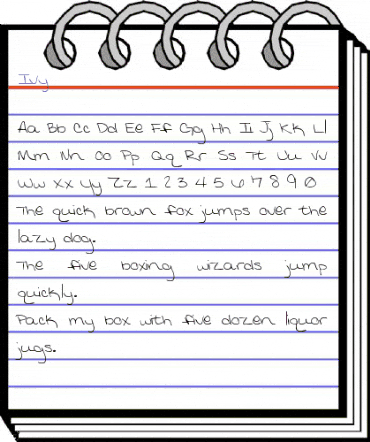 Ivy
Aa Bb Cc Dd Ee Ff Gg Hh Ii Jj Kk Ll
Mm Nn Oo Pp Qq Rr Ss Tt Uu Vv
Ww Xx Yy Zz 1 2 3 4 5 6 7 8 9 0
The quick brown fox jumps over the
lazy dog.
The five boxing wizards jump
quickly.
Pack my box with five dozen liquor
jugs.